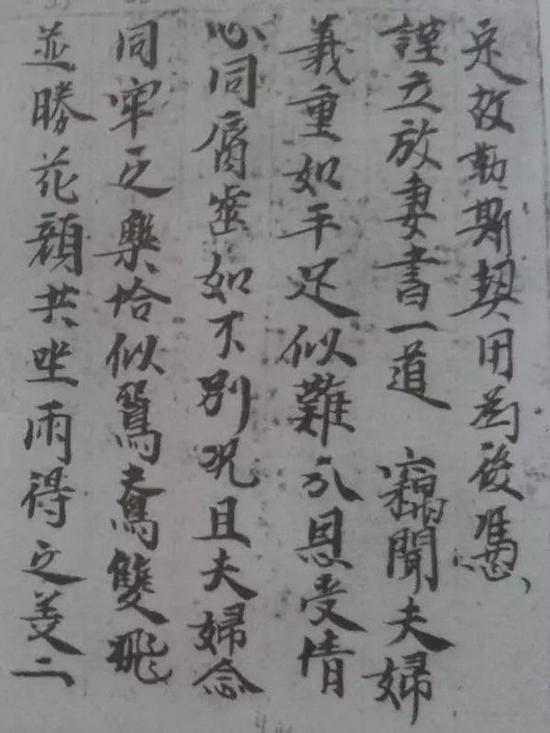 是故勒斯契用為後憑
謹立放妻書一道 竊聞夫婦
義重如手足似難分恩受情
心同脣齒如不別況且夫婦念
同牢之樂恰似鴛鴦雙飛
並勝花顏共坐兩得之美二